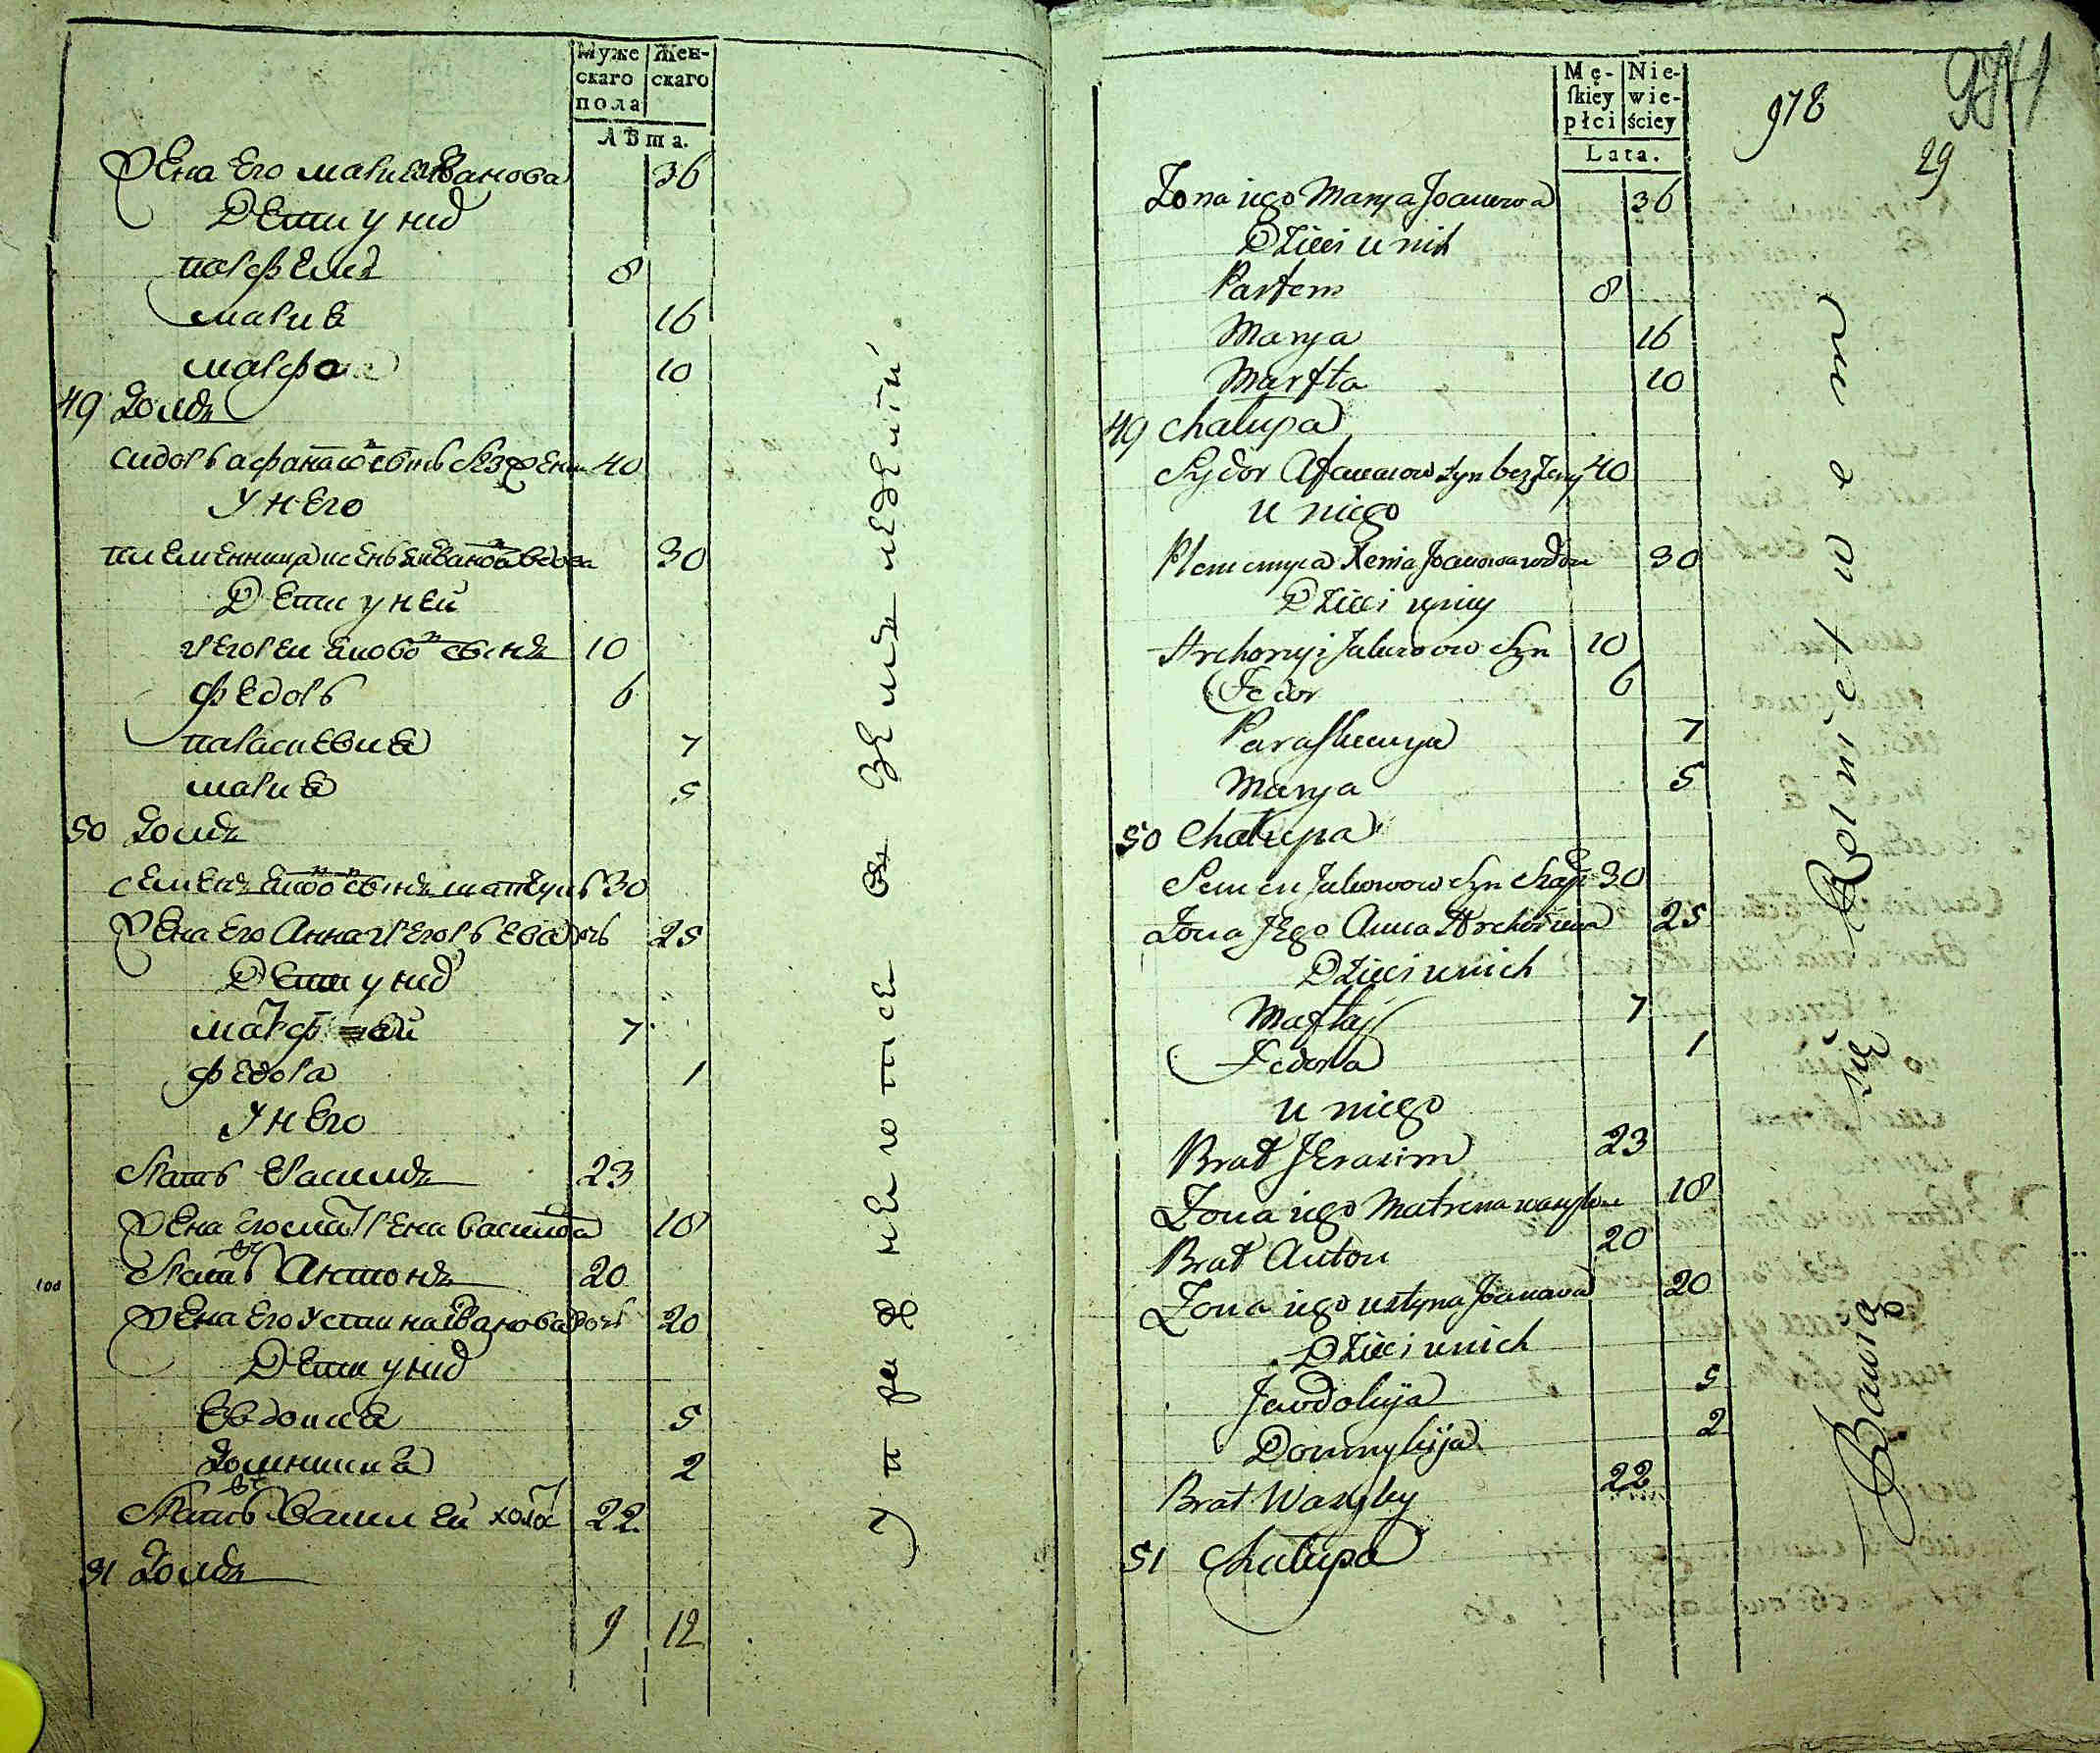 Муже
скаго
пола
Жен-
скаго
Лѣта.
Жена его мариѧ Иванова 36
Дети у них
парфенъ 8
мариѧ 16
марфа 10
49 домъ
сидоръ афанасов сынъ без жены 40
у него
племенница ксеньѧ иванова вдова 30
Дети у ней
григорей ѧковов сынъ 10
федоръ 6
параскевиѧ 7
мариѧ 5
50 домъ
семенъ ѧковов сынъ 30
Жена его Анна григорьева дочь 25
Дети у них
матфей 7
федора 1
у него
братъ герасимъ 23
Жена его матрена васильева 18
братъ Антонъ 20
Жена его устина Иванова дочь 20
Дети у них
Евдокиѧ 5
домникиѧ 2
братъ василей холос 22
51 домъ
9 12
Упражнѧютсѧ въ земледелїи.
Mę-
skiey
płci
Nie-
wie-
ściey
Lata.
978
29
Żona iego Marya Joanowa 36
Dzieci u nih
Parfem 8
Marya 16
Marfta 10
49 Chałupa
Sydor Afanasow syn bez żeny 40
u niego
Plemennyca Xenia Joanowa wdowa 30
Dzieci u niey
Hrehoryi Jakowow Syn 10
Fedor 6
Paraskewya 7
Marya 5
50 Chałupa
Semen Jakowow Syn 30
Żona Jego Anna Hrehorewa 25
Dzieci u nich
Maftej 7
Fedora 1
u niego
Brat Jerasim 23
Żona iego Matrena wasylowa 18
Brat Anton 20
Żona iego ustyna Joanowa 20
Dzieci u nich
Jewdokija 5
Domnykija 2
Brat Wasyley 22
51 Chałupa
Bawią się Rolnictwem